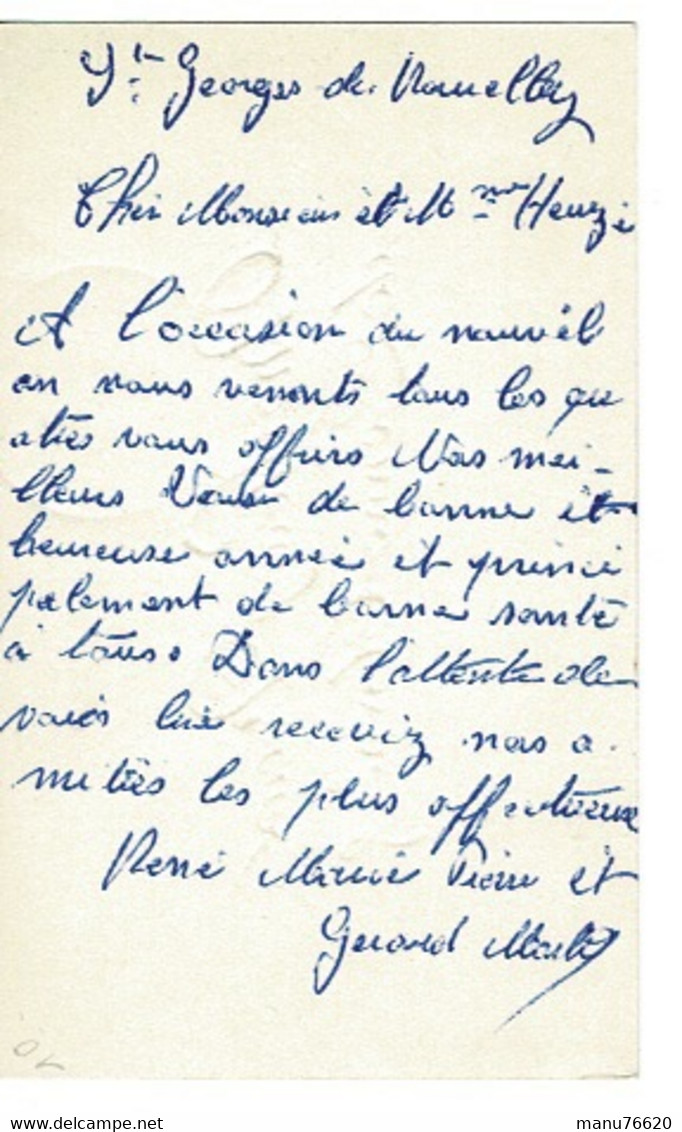 St Georges de Rouelley
Cher Monsieur et Mme Heuzé
A l'occasion du nouvel
an nous venonts tous les qu
atres vous offrirs Nos mei-
lleurs Vœux de bonne et
heureuse année et princi
palement de bonne santé
à tous. Dans l'attente de
vous lire recevez nos a
mitiés les plus affectueux
René Marie Pierre et
Gerard
delcampe.net
manu76620